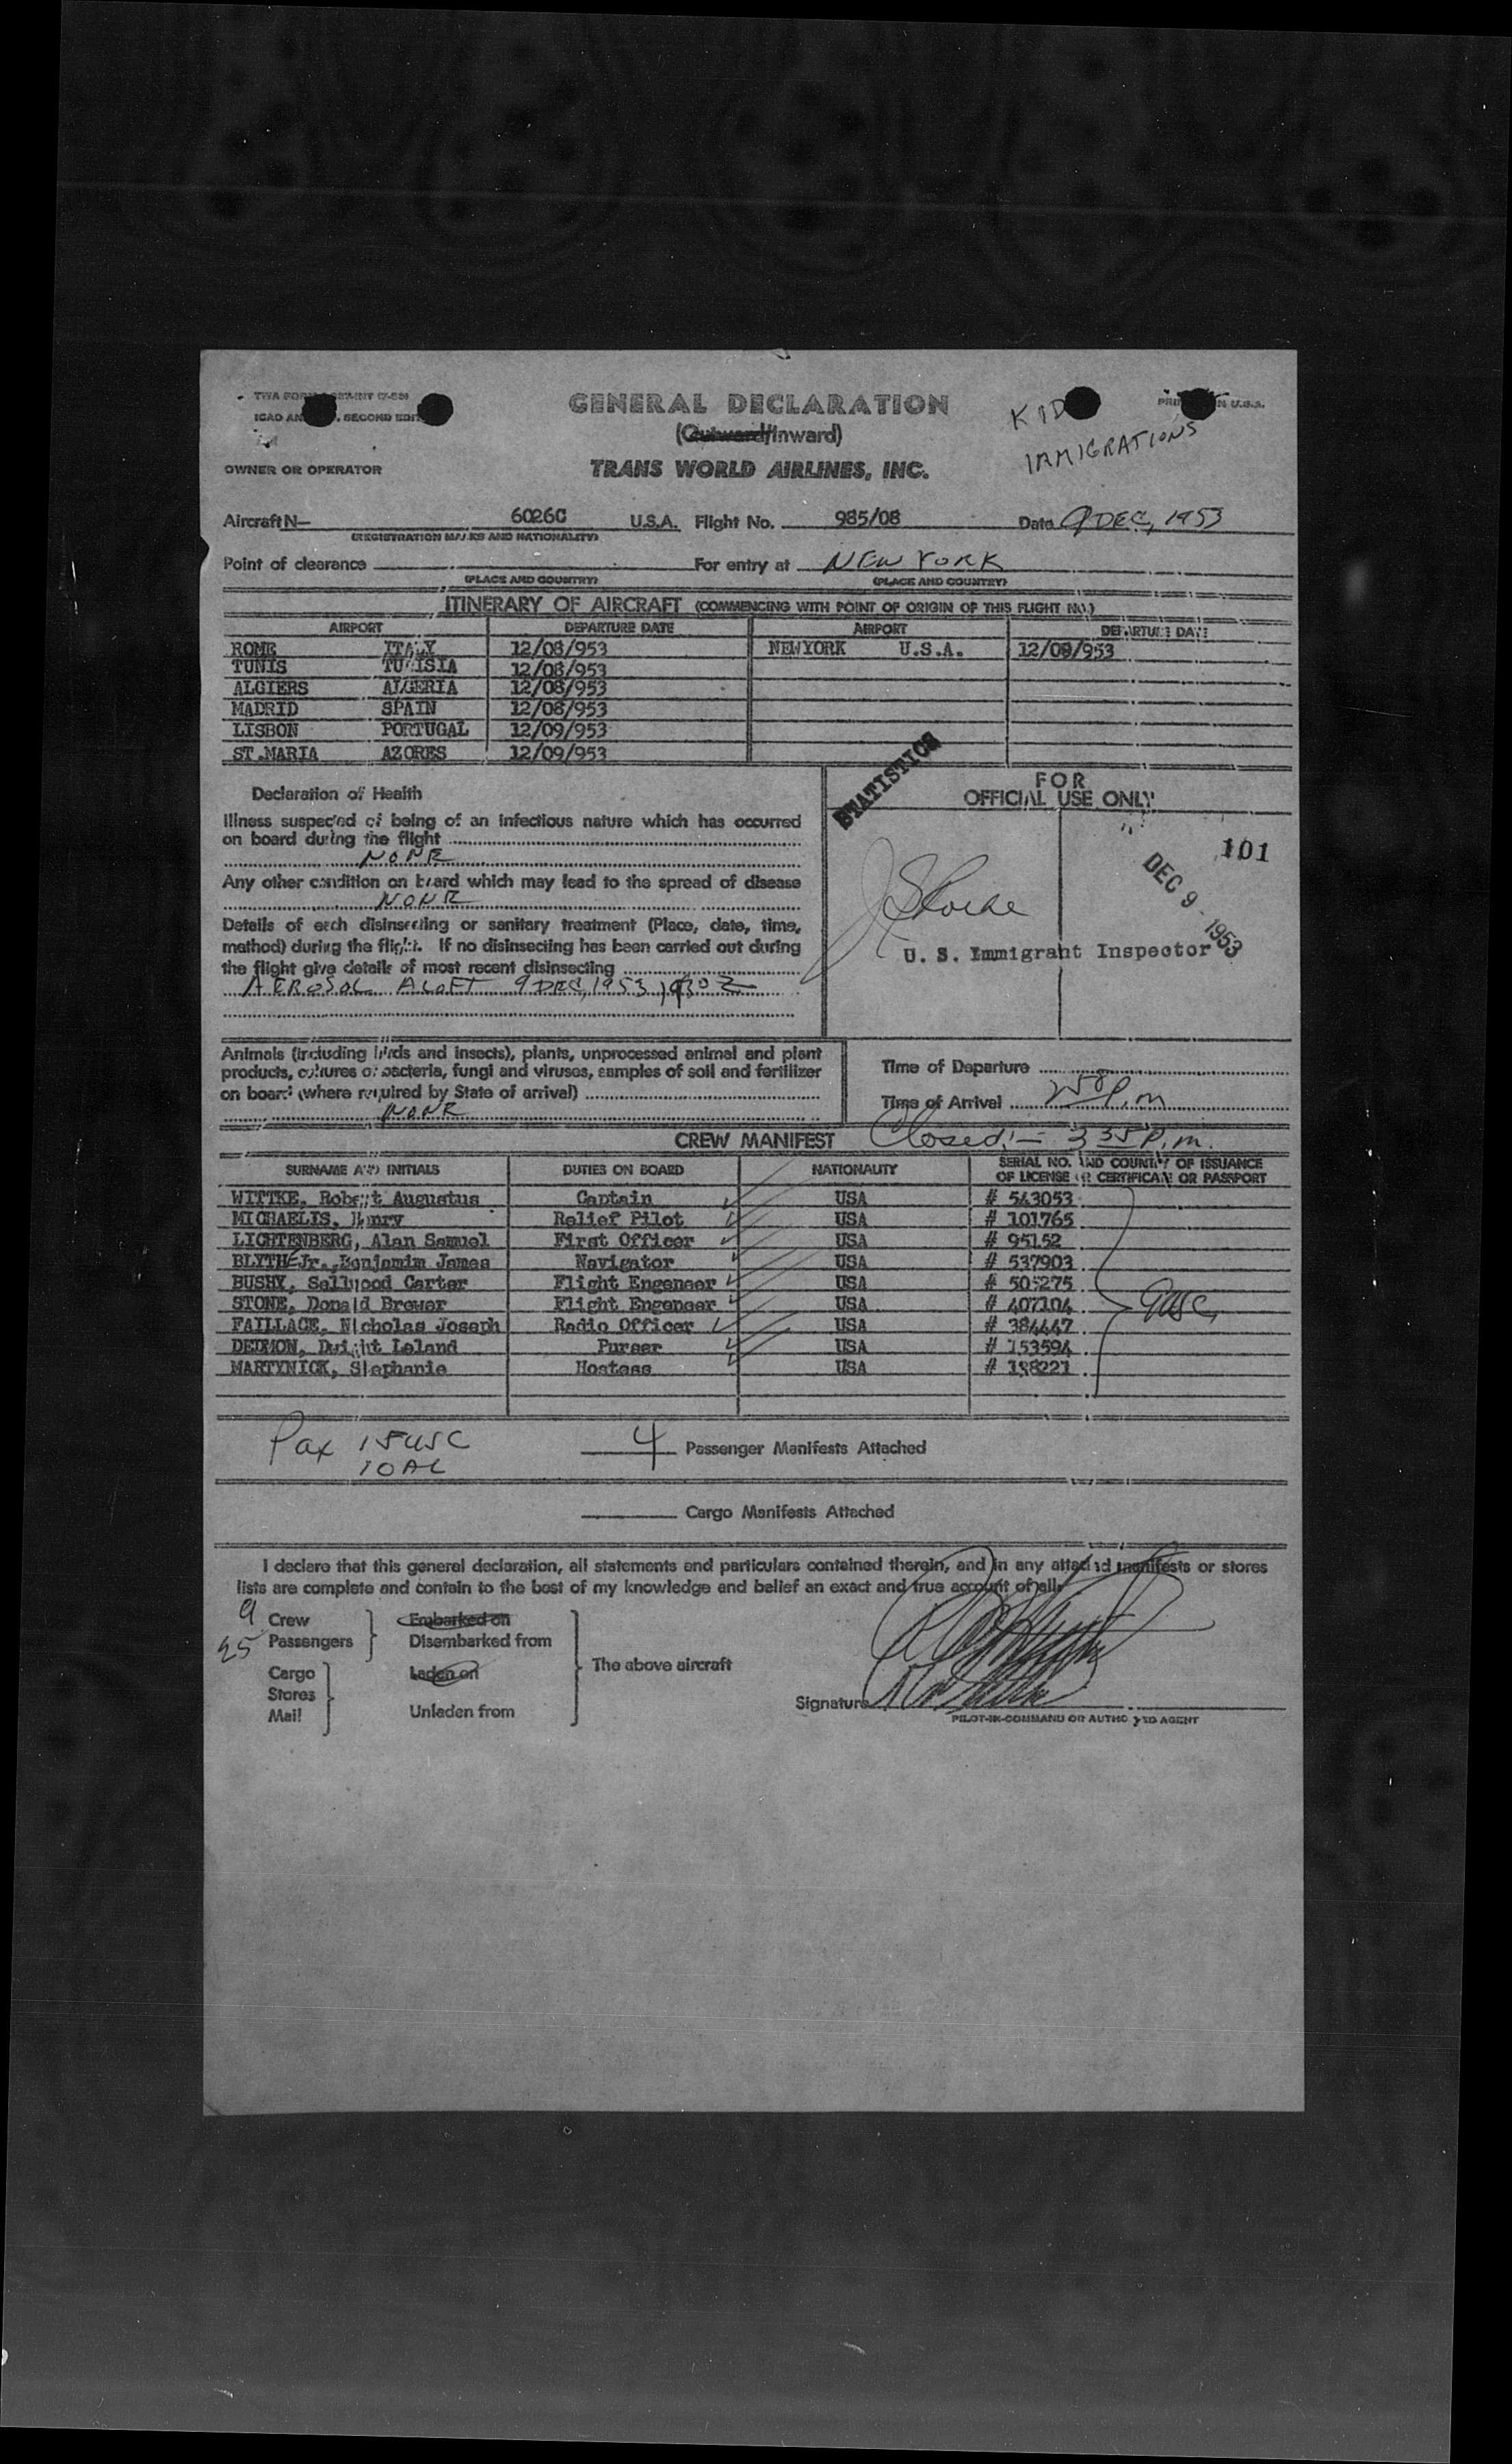 GENERAL DECLARATION
(Outward/Inward)
KID
IMMIGRATIONS
OWNER OR OPERATOR TRANS WORLD AIRLINES, INC.
Aircraft N— 6026C U.S.A. Flight No. 985/08 Date 9 DEC, 1953
(REGISTRATION MARKS AND NATIONALITY)
Point of clearance For entry at NEW YORK
(PLACE AND COUNTRY) (PLACE AND COUNTRY)
ITINERARY OF AIRCRAFT (COMMENCING WITH POINT OF ORIGIN OF THIS FLIGHT NO.)
AIRPORT DEPARTURE DATE AIRPORT DEPARTURE DATE
ROME ITALY 12/08/953 NEWYORK U.S.A. 12/09/953
TUNIS TUNISIA 12/08/953
ALGIERS ALGERIA 12/08/953
MADRID SPAIN 12/08/953
LISBON PORTUGAL 12/09/953
ST.MARIA AZORES 12/09/953
STATISTICS
FOR
OFFICIAL USE ONLY
101
DEC 9 1953
U. S. Immigrant Inspector
Declaration of Health
Illness suspected of being of an infectious nature which has occurred
on board during the flight
NONE
Any other condition on board which may lead to the spread of disease
NONE
Details of each disinsecting or sanitary treatment (Place, date, time,
method) during the flight. If no disinsecting has been carried out during
the flight give details of most recent disinsecting
AEROSOL ALOFT 9 DEC, 1953
Animals (including birds and insects), plants, unprocessed animal and plant
products, cultures of bacteria, fungi and viruses, samples of soil and fertilizer
on board (where required by State of arrival)
NONE
Time of Departure
Time of Arrival 250 P.m
CREW MANIFEST Closed:- 335 P.m.
SURNAME AND INITIALS DUTIES ON BOARD NATIONALITY SERIAL NO. AND COUNTRY OF ISSUANCE
OF LICENSE OR CERTIFICATE OR PASSPORT
WITTKE, Robert Augustus Captain USA # 543053
MICHAELIS, Henry Relief Pilot USA # 101765
LICHTENBERG, Alan Samuel First Officer USA # 95152
BLYTHE Jr., Benjamim James Navigator USA # 537903
BUSHY, Sellwood Carter Flight Engeneer USA # 505275
STONE, Donald Brewer Flight Engeneer USA # 407104 9usc
FAILLACE, Nicholas Joseph Radio Officer USA # 384447
DEDMON, Dwight Leland Purser USA # 153594
MARTYNICK, Stephanie Hostess USA # 198221
Pax 15 USC
10 AL
4 Passenger Manifests Attached
Cargo Manifests Attached
I declare that this general declaration, all statements and particulars contained therein, and in any attached manifests or stores
lists are complete and contain to the best of my knowledge and belief an exact and true account of all:
9 Crew Embarked on
25 Passengers Disembarked from
The above aircraft
Cargo Laden on
Stores
Mail Unladen from
Signature
PILOT-IN-COMMAND OR AUTHORIZED AGENT